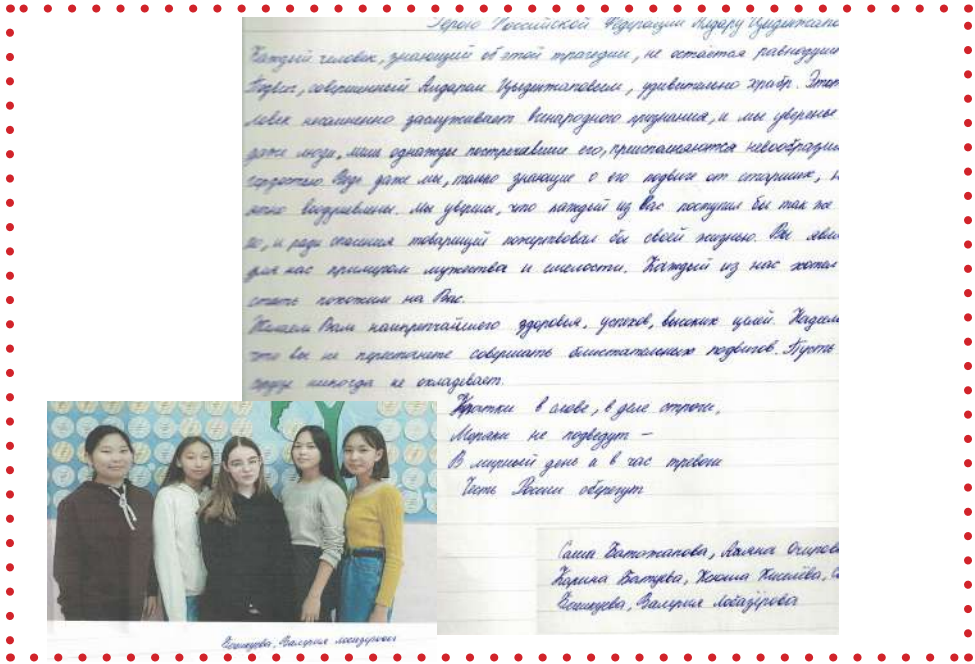 Герою Российской Федерации Алдару Цыденжапо
Каждый человек, знающий об этой трагедии, не остаётся равнодуш
Подвиг, совершенный Алдаром Цыденжаповым, удивительно храбр. Этот
ловек несомненно заслуживает всенародного признания, и мы уверены
даже люди, лишь однажды повстречавшие его, преисполняются невообрази
гордостью. Ведь даже мы, только знающие о его подвиге от старших,
воодушевлены. Мы уверены, что каждый из Вас поступил бы так же
и ради спасения товарищей пожертвовал бы своей жизнью. Вы явля
для нас примером мужества и смелости. Каждый из нас хотел
стать похожим на Вас.
Желаем Вам наикрепчайшего здоровья, успехов, высоких целей. Надеем
что вы не перестанете совершать блистательных подвигов. Пусть
сердце никогда не охладевает.
Кратки в слове, в деле строги,
Моряки не подведут –
В мирный день а в час тревоги
Честь России сберегут
Саша Батожапова, Аяна Очиров
Карина Батуева, Ксюша Киселёва,
Валерия Лобазёрова
Валерия